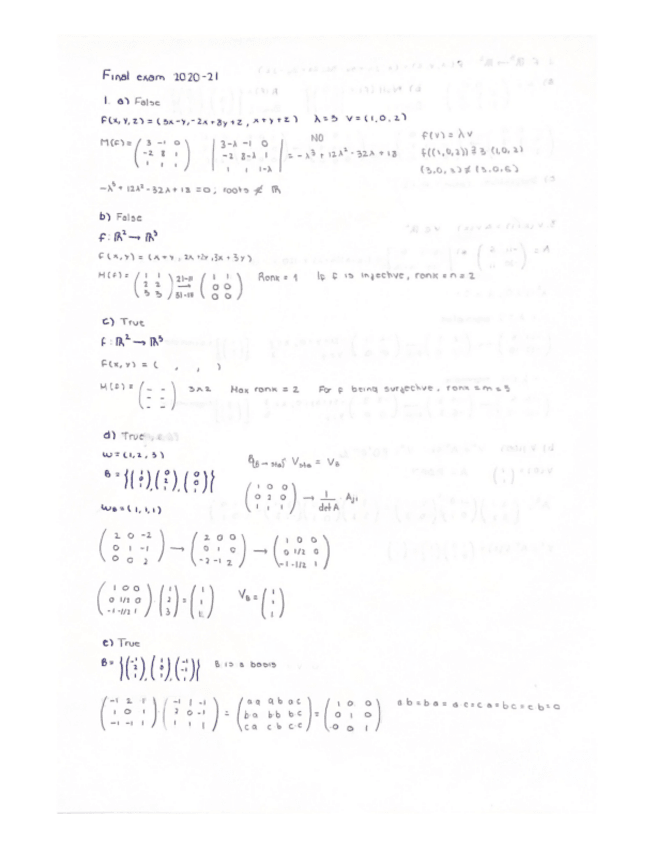 Final exam 2020-21
1. a) False
F(x,y,z) = (3x-y, -2x+8y+z, x+y+z) λ=3 v=(1,0,2)
NO
f(v) = λv
M(F) = ( 3 -1 0 | 3-λ -1 0
-2 8 1 | -2 8-λ 1 | = -λ³+12λ²-32λ+18 f((1,0,2)) ≟ 3·(1,0,2)
1 1 1 ) | 1 1 1-λ (3,0,3) ≠ (3,0,6)
-λ³+12λ²-32λ+18=0; roots ∉ ℝ
b) False
f: ℝ² → ℝ³
F(x,y) = (x+y, 2x+2y, 3x+3y)
M(F) = ( 1 1 / 2 2 / 3 3 ) → ( 1 1 / 0 0 / 0 0 ) Rank = 1 If f is injective, rank = n = 2
c) True
f: ℝ² → ℝ³
F(x,y) = ( , , )
M(F) = ( - - / - - / - - ) 3x2 Max rank = 2 For f being surjective, rank = m = 3
d) True
w = (1,2,3)
B = {( 1 0 1 ), ( 0 2 1 ), ( 0 0 1 )} V = V_B
W_B = (1,1,1) ( 1 0 0 / 0 2 0 / 1 1 1 ) → 1/det A · Aji
( 2 0 -2 / 0 1 -1 / 0 0 2 ) → ( 2 0 0 / 0 1 0 / -2 -1 2 ) → ( 1 0 0 / 0 1/2 0 / -1 -1/2 1 )
( 1 0 0 / 0 1/2 0 / -1 -1/2 1 ) ( 1 / 2 / 3 ) = ( 1 / 1 / 1 ) V_B = ( 1 / 1 / 1 )
e) True
B = {( -1 2 1 ), ( 1 0 1 ), ( -1 -1 1 )} B is a basis
( -1 2 1 / 1 0 1 / -1 -1 1 ) ( -1 1 -1 / 2 0 -1 / 1 1 1 ) = ( aa ab ac / ba bb bc / ca cb cc ) = ( 1 0 0 / 0 1 0 / 0 0 1 ) ab=ba=ac=ca=bc=cb=0